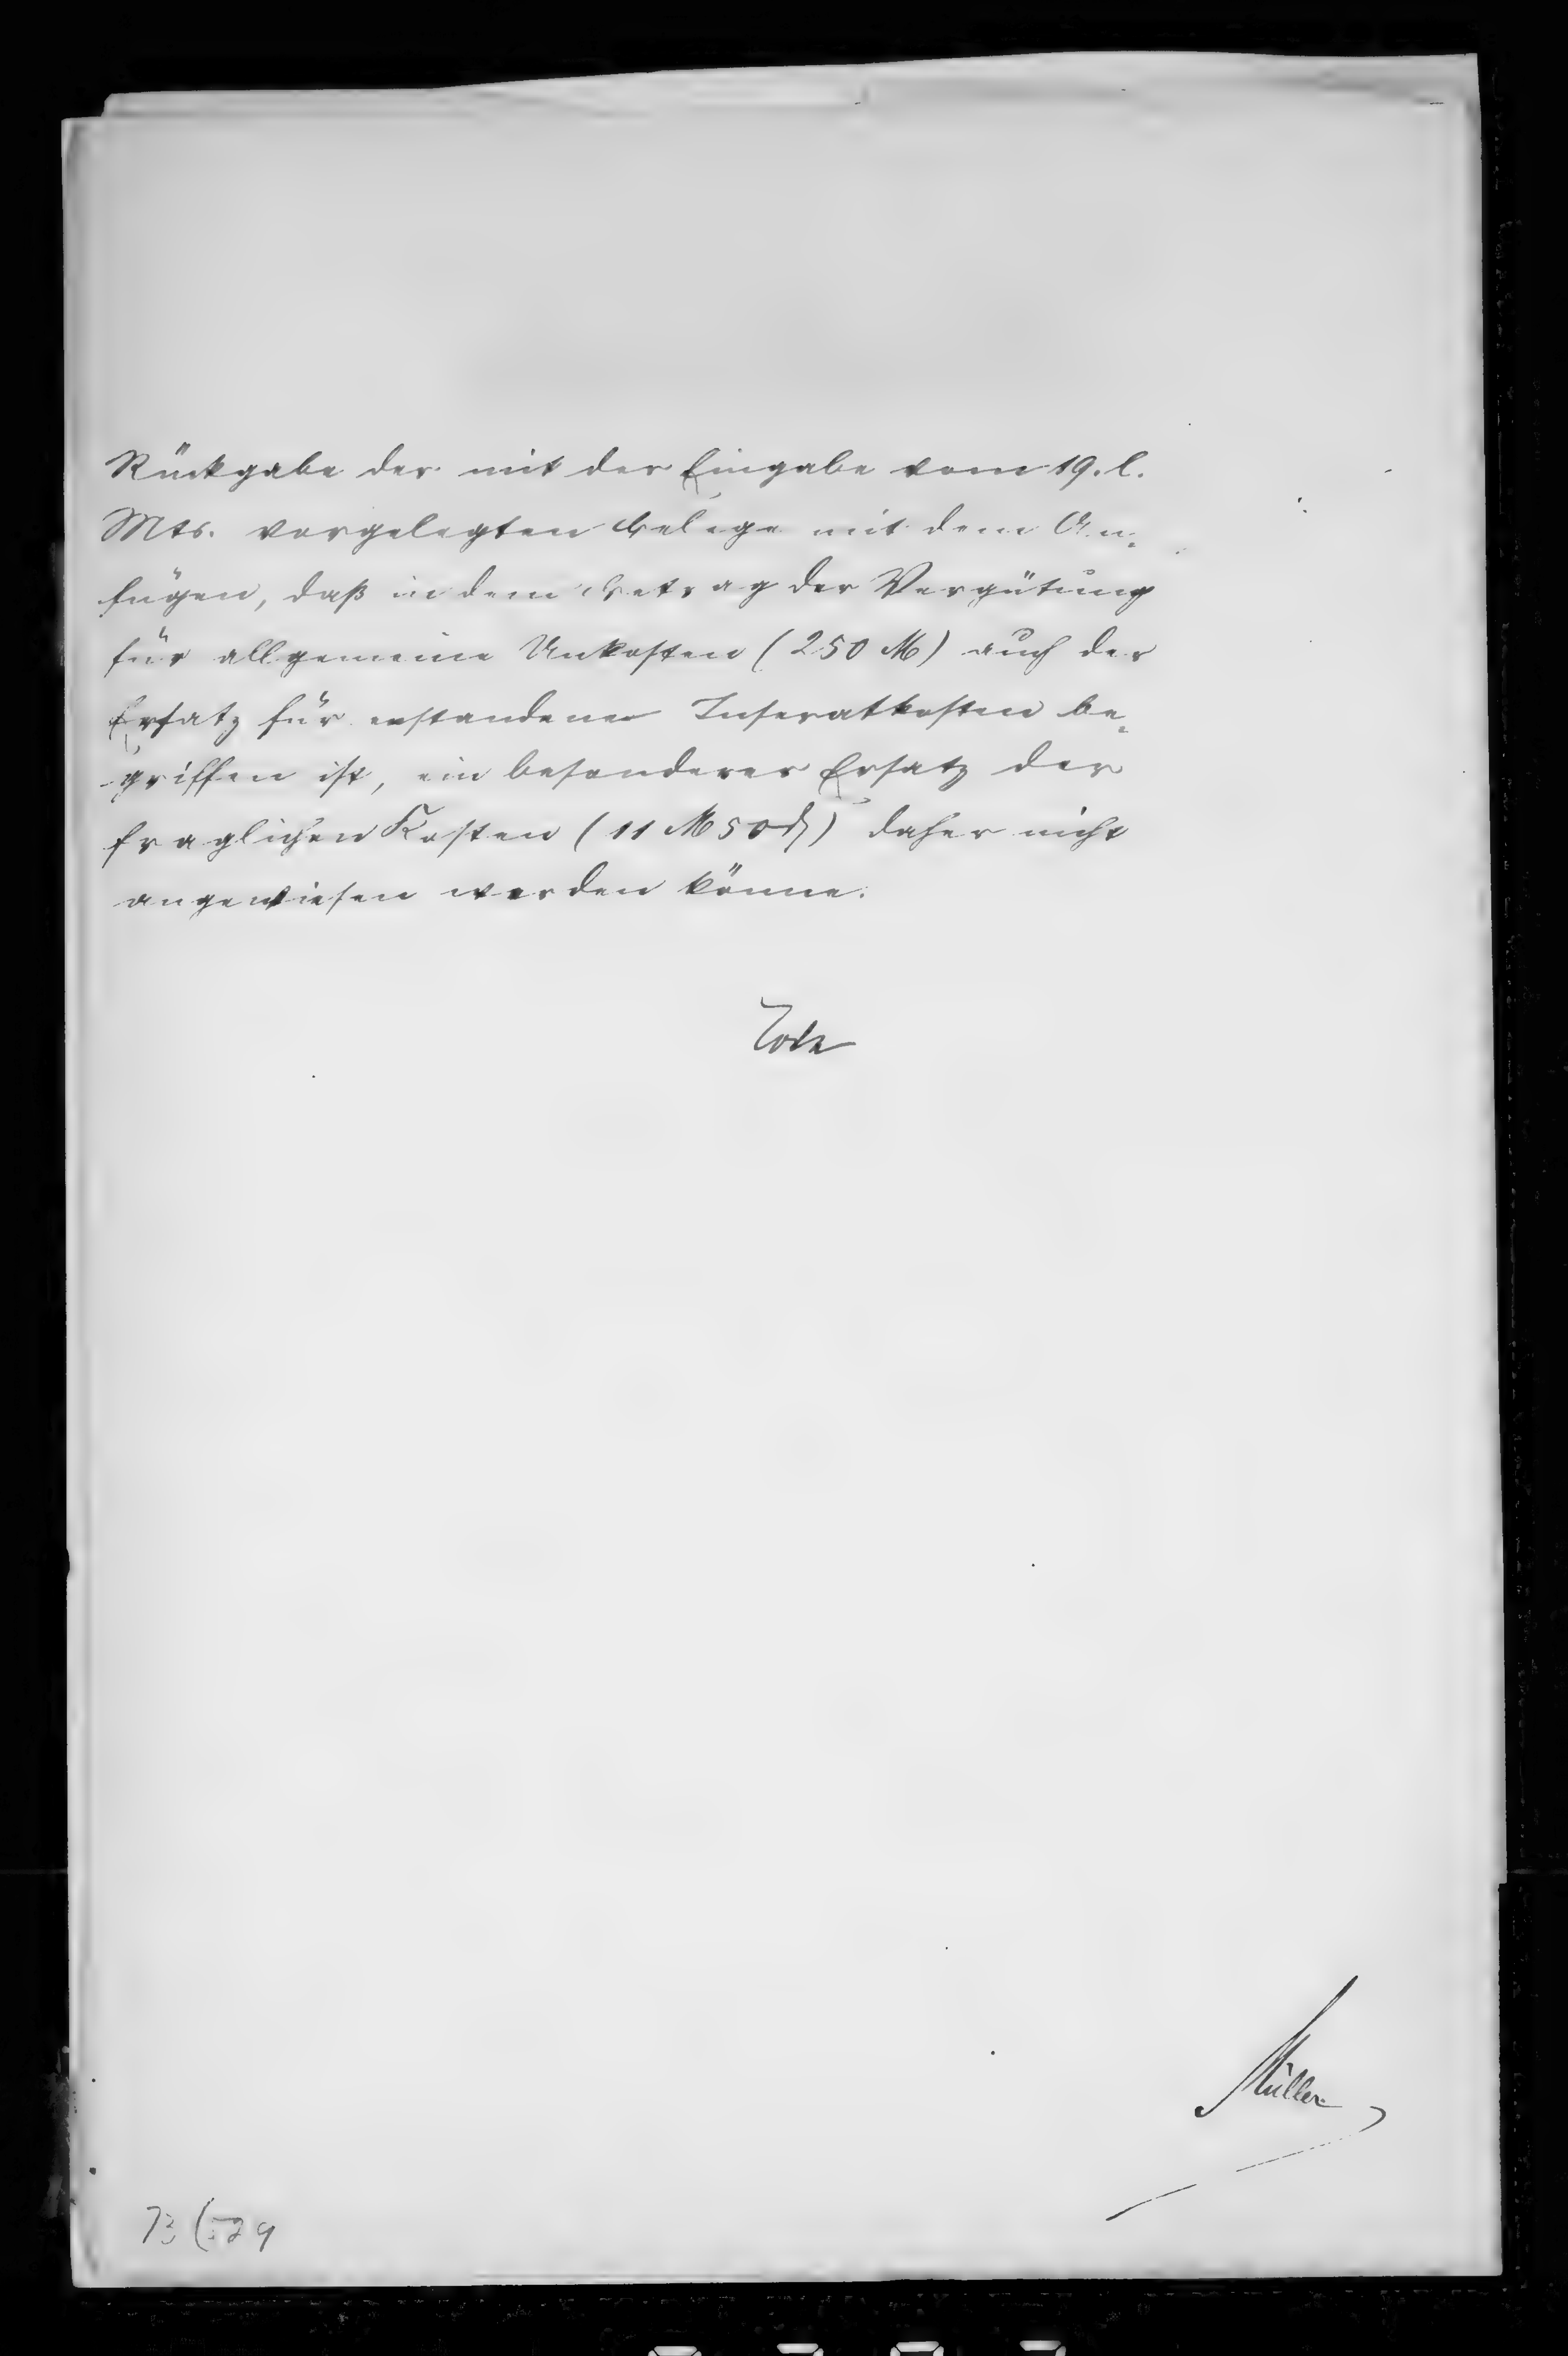 Rückgabe der mit der Eingabe vom 19. l.
Mts. vorgelegten Belege mit dem An-
fügen, daß in dem Betrag der Vergütung
für allgemeine Unkosten (250 M) auch der
Ersatz für enstandene Inseratkosten be-
griffen ist, ein besonderer Ersatz der
fraglichen Kosten (11 M 50 ₰) daher nicht
angewiesen werden könne.
Müller